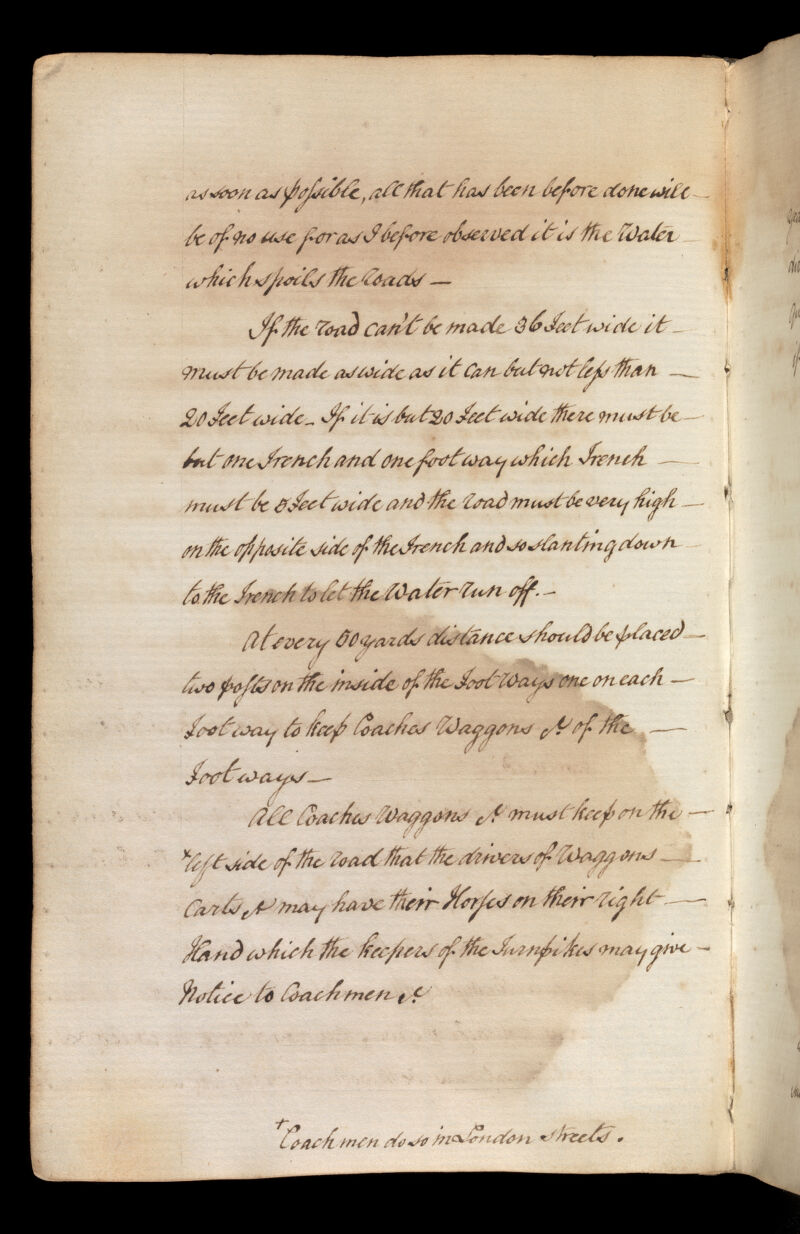 as soon as possible, all that has been before done will —
be of no use for as I before observed it is the Water —
which spoils the roads —
If the road can't be made 36 Feet wide it —
must be made as wide as it can but not less than —
20 Feet wide — If it is but 20 Feet wide there must be —
but one Trench and one foot way which Trench —
must be 5 Feet wide and the road must be very high —
on the opposite side of the Trench and so slanting down —
to the Trench to let the Water run off. —
At every 50 yards distance should be placed —
two posts on the inside of the Foot Ways one on each —
Foot way to keep Coaches Waggons &c of the —
Foot ways —
All Coaches Waggons &c must keep on the —
+left side of the road that the drivers of Waggons —
Carts &c may have their Horses on their right —
Hand which the keepers of the Turnpikes may give —
Notice to Coachmen &c
+Coachmen do so in London streets.